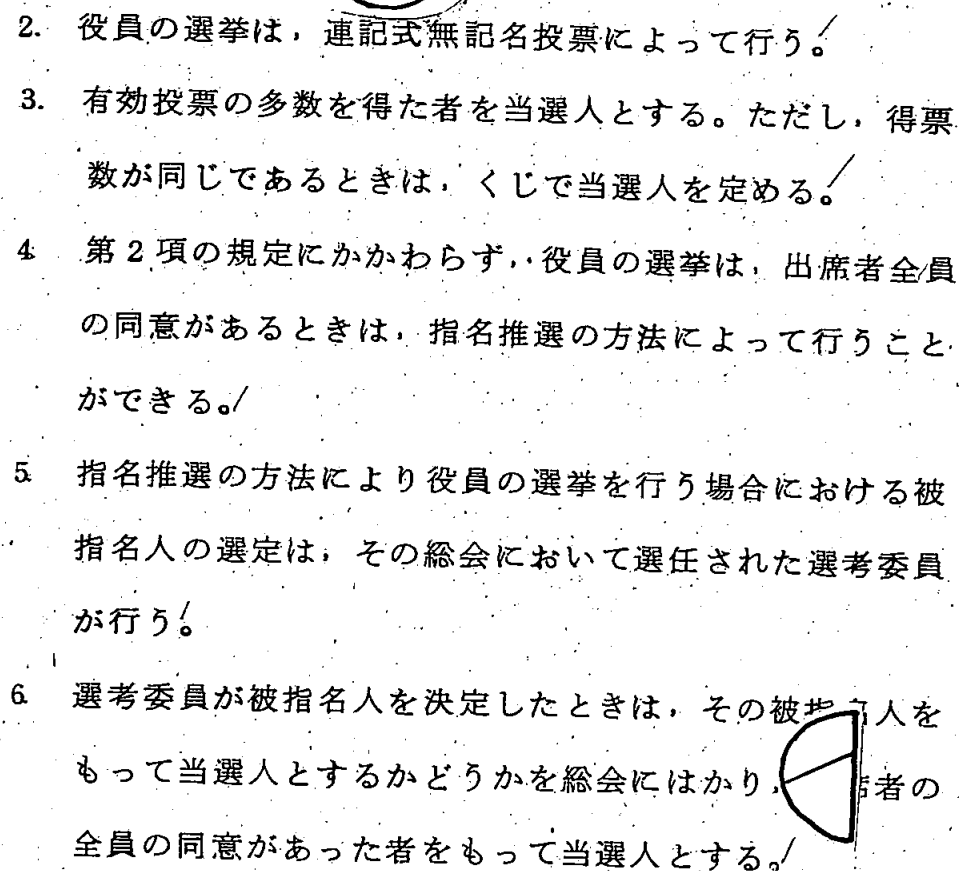 2. 役員の選挙は，連記式無記名投票によって行う。
3. 有効投票の多数を得た者を当選人とする。ただし，得票
数が同じであるときは，くじで当選人を定める。
4 第2項の規定にかかわらず，役員の選挙は，出席者全員
の同意があるときは，指名推選の方法によって行うこと
ができる。
5 指名推選の方法により役員の選挙を行う場合における被
指名人の選定は，その総会において選任された選考委員
が行う。
6 選考委員が被指名人を決定したときは，その被指名人を
もって当選人とするかどうかを総会にはかり，席者の
全員の同意があった者をもって当選人とする。